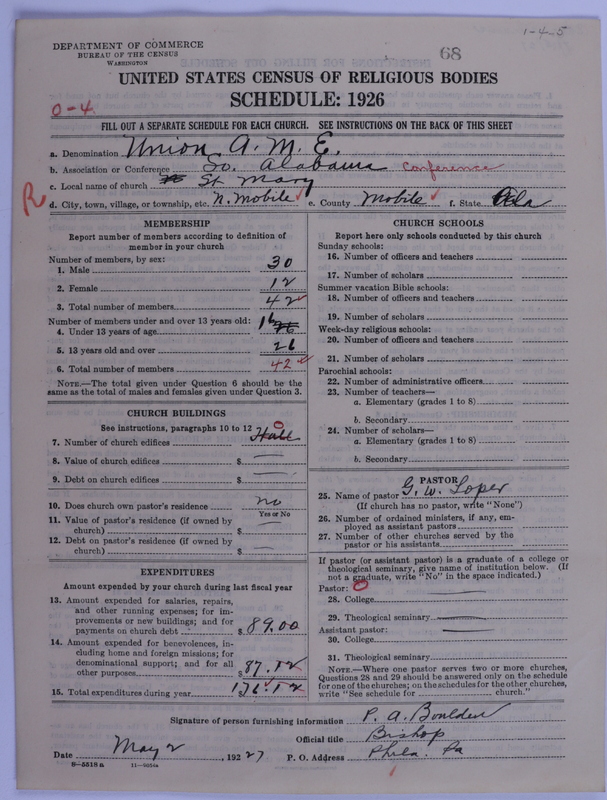 1-4-5
DEPARTMENT OF COMMERCE
BUREAU OF THE CENSUS
WASHINGTON
68
UNITED STATES CENSUS OF RELIGIOUS BODIES
SCHEDULE: 1926
0-4.
FILL OUT A SEPARATE SCHEDULE FOR EACH CHURCH. SEE INSTRUCTIONS ON THE BACK OF THIS SHEET
a. Denomination Union A. M. E.
b. Association or Conference So. Alabama Conference
c. Local name of church St Mary
R
d. City, town, village, or township, etc. N. Mobile e. County Mobile f. State Ala
MEMBERSHIP
Report number of members according to definition of
member in your church
Number of members, by sex:
1. Male 30
2. Female 12
3. Total number of members 42
Number of members under and over 13 years old:
4. Under 13 years of age 16
5. 13 years old and over 26
6. Total number of members 42
NOTE.—The total given under Question 6 should be the
same as the total of males and females given under Question 3.
CHURCH BUILDINGS
See instructions, paragraphs 10 to 12
7. Number of church edifices Hall 0
8. Value of church edifices $ —
9. Debt on church edifices $ —
10. Does church own pastor's residence no
Yes or No
11. Value of pastor's residence (if owned by
church) $ —
12. Debt on pastor's residence (if owned by
church) $ —
EXPENDITURES
Amount expended by your church during last fiscal year
13. Amount expended for salaries, repairs,
and other running expenses; for im-
provements or new buildings; and for
payments on church debt $ 89.00
14. Amount expended for benevolences, in-
cluding home and foreign missions; for
denominational support; and for all
other purposes $ 87.12
15. Total expenditures during year $ 176.12
CHURCH SCHOOLS
Report here only schools conducted by this church
Sunday schools:
16. Number of officers and teachers
17. Number of scholars
Summer vacation Bible schools:
18. Number of officers and teachers
19. Number of scholars
Week-day religious schools:
20. Number of officers and teachers
21. Number of scholars
Parochial schools:
22. Number of administrative officers
23. Number of teachers—
a. Elementary (grades 1 to 8)
b. Secondary
24. Number of scholars—
a. Elementary (grades 1 to 8)
b. Secondary
PASTOR
25. Name of pastor G. W. Loper
(If church has no pastor, write "None")
26. Number of ordained ministers, if any, em-
ployed as assistant pastors
27. Number of other churches served by the
pastor or his assistants
If pastor (or assistant pastor) is a graduate of a college or
theological seminary, give name of institution below. (If
not a graduate, write "No" in the space indicated.)
Pastor: 0
28. College —
29. Theological seminary —
Assistant pastor: —
30. College
31. Theological seminary
NOTE.—Where one pastor serves two or more churches,
Questions 28 and 29 should be answered only on the schedule
for one of the churches; on the schedules for the other churches,
write "See schedule for ________ church."
Signature of person furnishing information P. A. Boulden
Official title Bishop
Date May 2, 1927 P. O. Address Phila. Pa
8-5518a 11-9054a